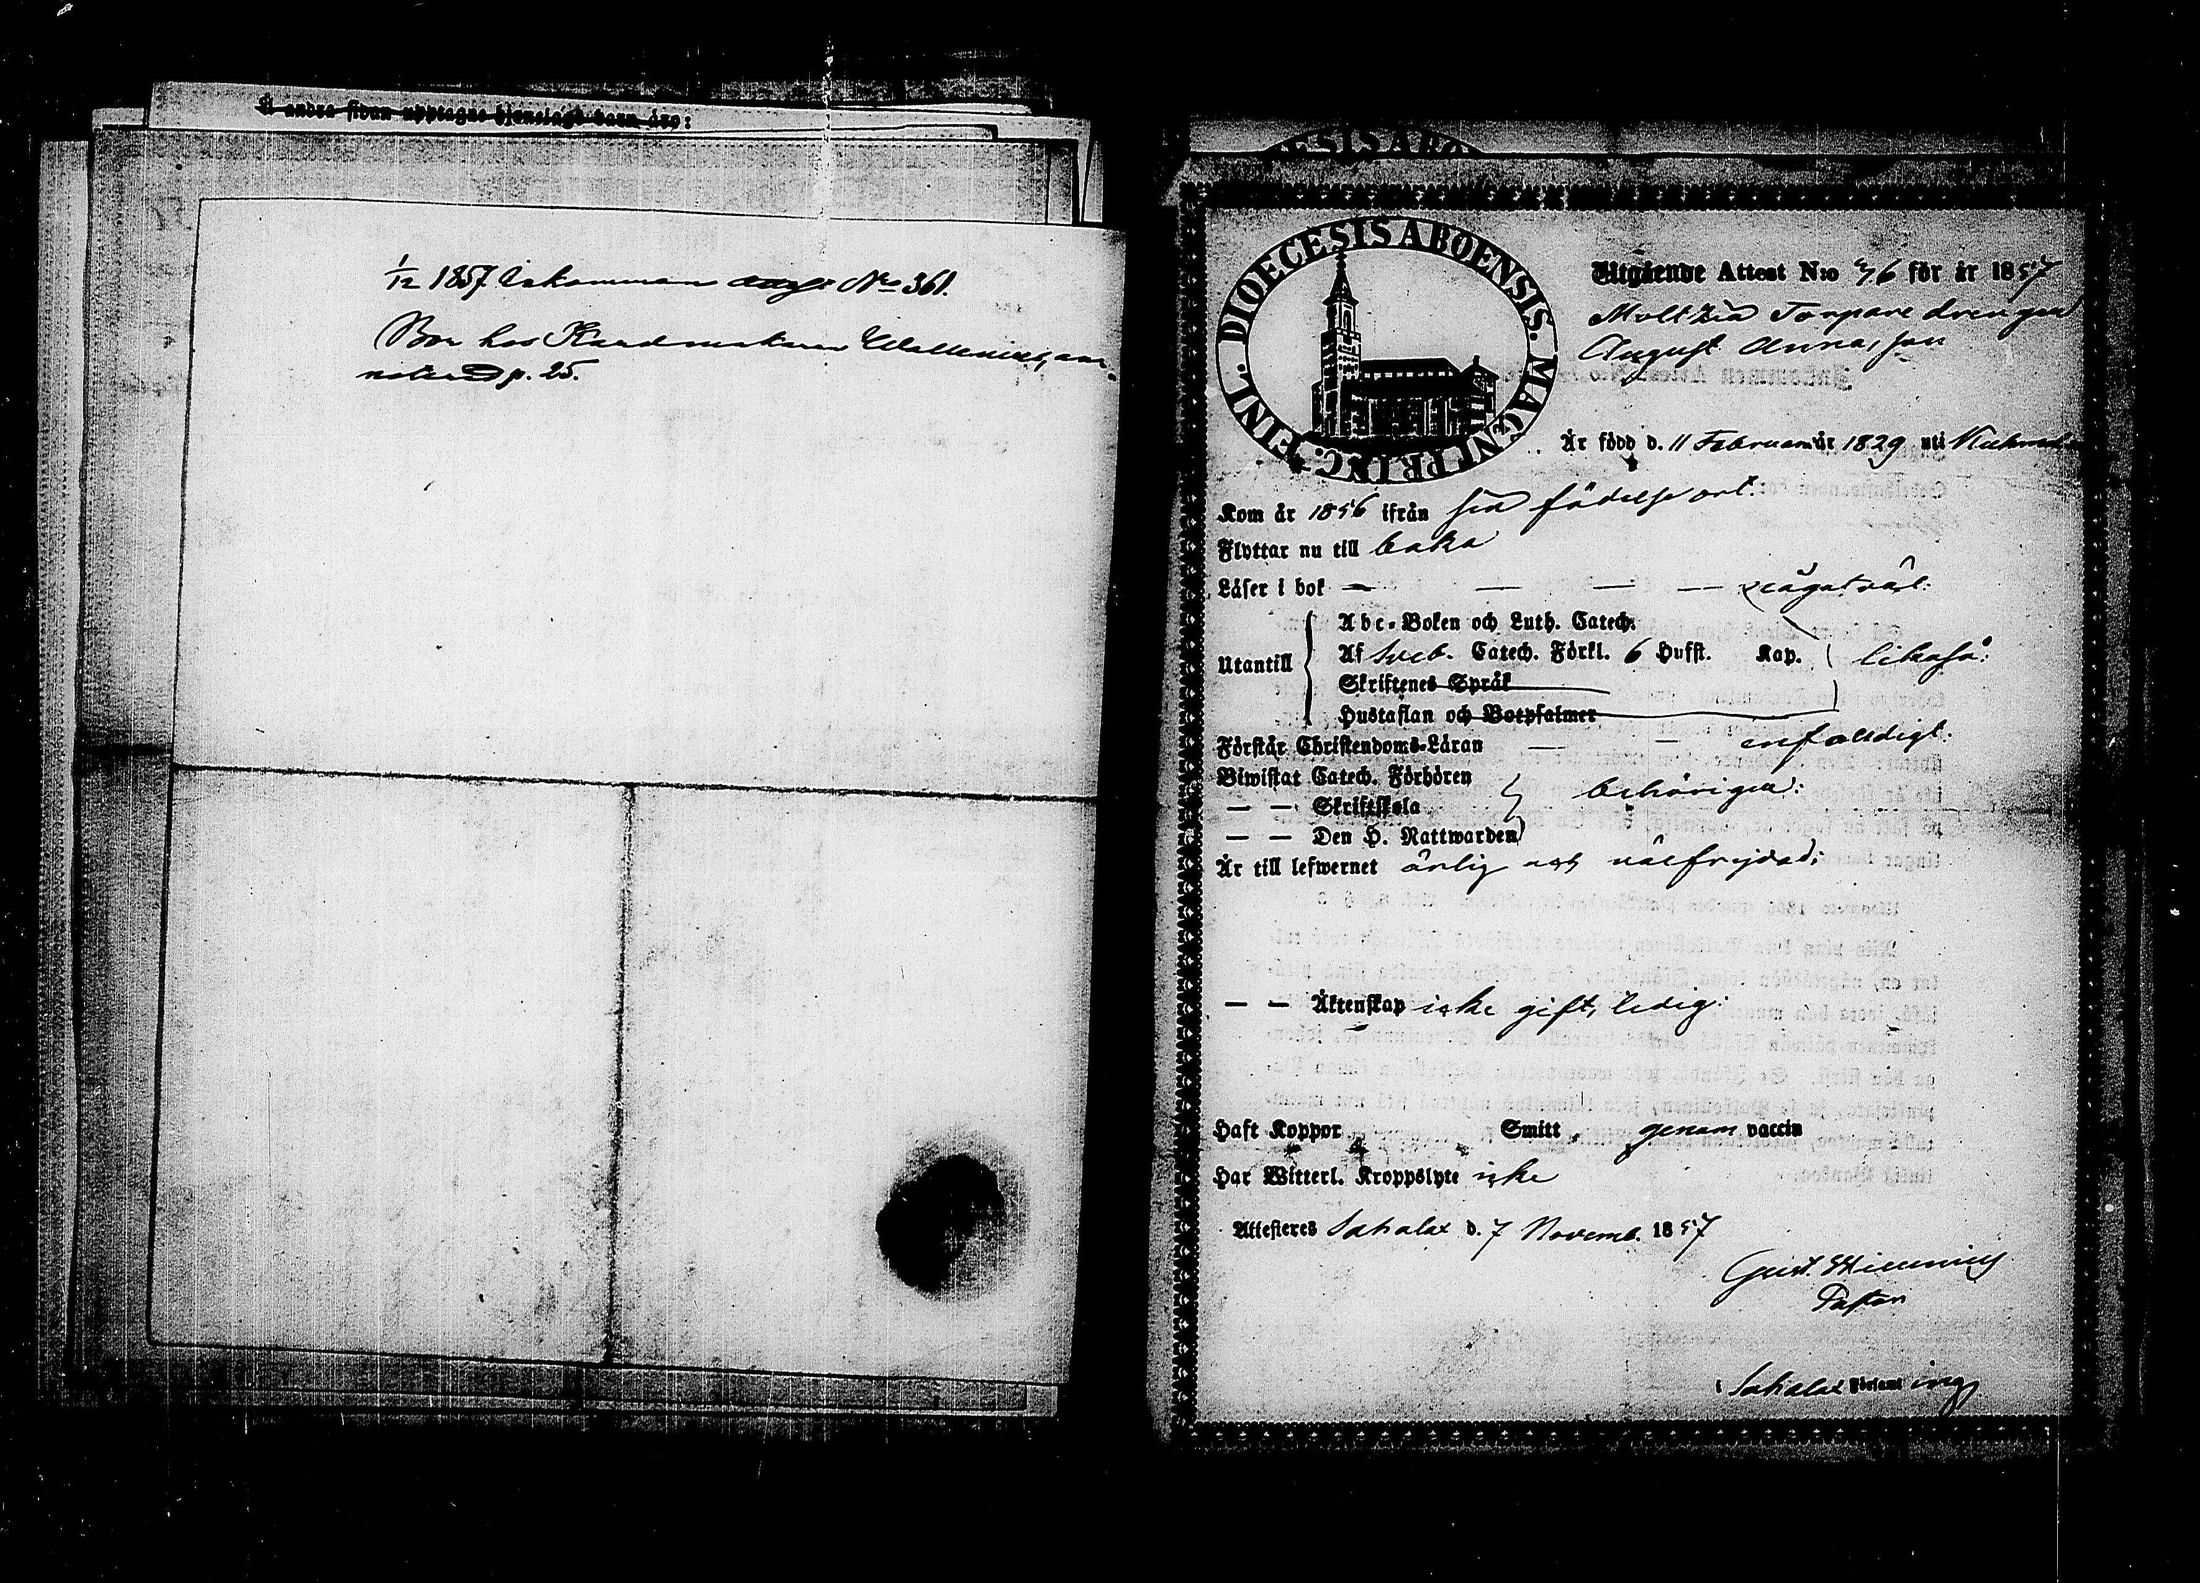 Å andra sidan upptagne hjonelags barn äro:
1/12 1857 Inkommen No 361.
Bor hos Handmakare an-
noterad p. 25.
DIOECESIS ABOENSIS. MAGNI PRINC. FINL.
Utgående Attest N:o 76 för år 1857
Torpare drengen
August Annasson
Är född d. 11 Februari år 1829 uti
Kom år 1856 ifrån sin födelse ort.
Flyttar nu till baka
Läser i bok — — — — något väl:
Abc-Boken och Luth. Catech.
Utantill Af Sveb. Catech. Förkl. 6 Hufst. Kap. likaså:
Skriftenes Språk
Hustaflan och Botpsalmer
Förstår Christendoms-Läran — — enfaldigt:
Biwistat Catech. Förhören
— — Skriftskola behörigen:
— — Den H. Nattwarden
Är till lefwernet ärlig och välfrejdad;
— — Äktenskap icke gift, ledig:
Haft Koppor Smitt genom vaccin
Har Witterl. Kroppslyte icke
Attesteras Sahalax d. 7 Novemb. 1857
Gust.
Pastor
i Sahalax Församling